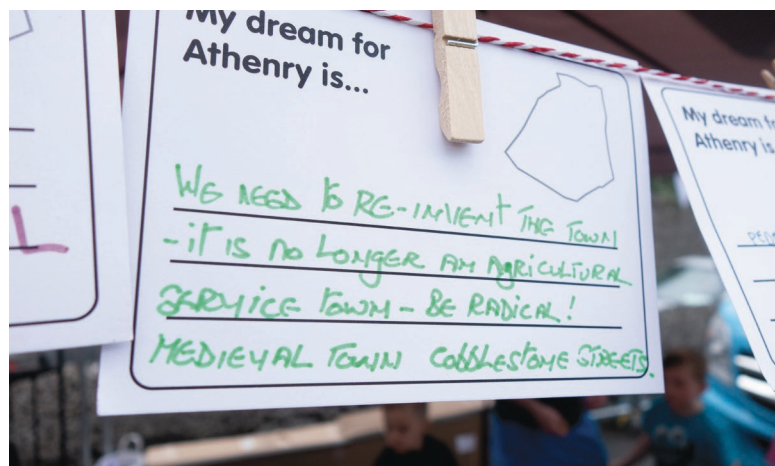 My dream for
Athenry is...
WE NEED to RE-INVENT THE TOWN
- it is no LONGER AN AGRICULTURAL
SERVICE TOWN - BE RADICAL!
MEDIEVAL TOWN COBBLESTONE STREETS.
L
My dream f
Athenry is